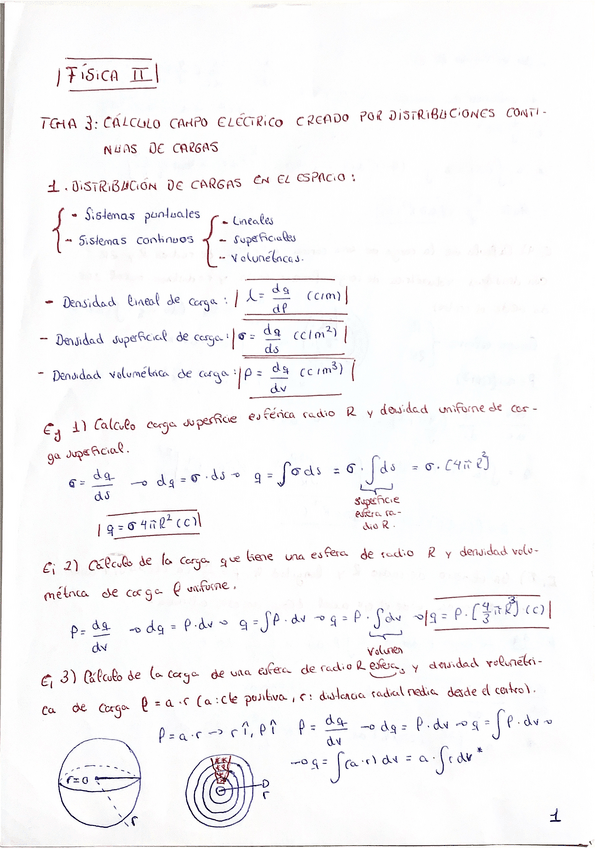 FÍSICA II
TEMA 3: CÁLCULO CAMPO ELÉCTRICO CREADO POR DISTRIBUCIONES CONTI-
NUAS DE CARGAS
1. DISTRIBUCIÓN DE CARGAS EN EL ESPACIO:
- Sistemas puntuales
- Sistemas continuos
- Lineales
- Superficiales
- Volumétricas.
- Densidad lineal de carga: λ = dq/dl (C/m)
- Densidad superficial de carga: σ = dq/ds (C/m²)
- Densidad volumétrica de carga: ρ = dq/dv (C/m³)
Ej 1) Calculo carga superficie esférica radio R y densidad uniforme de car-
ga superficial.
σ = dq/ds → dq = σ · ds → q = ∫σds = σ · ∫ds = σ · [4πR²]
superficie
esfera ra-
dio R.
q = σ4πR² (C)
Ej 2) Cálculo de la carga que tiene una esfera de radio R y densidad volu-
métrica de carga ρ uniforme.
ρ = dq/dv → dq = ρ · dv → q = ∫ρ · dv → q = ρ · ∫dv → q = ρ · [4/3 πR³] (C)
volumen
Ej 3) Cálculo de la carga de una esfera de radio R esfera, y densidad volumétri-
ca de carga ρ = a · r (a: cte positiva, r: distancia radial media desde el centro).
ρ = a · r → r↑, ρ↑ ρ = dq/dv → dq = ρ · dv → q = ∫ρ · dv →
→ q = ∫(a · r) dv = a · ∫r dv*
r=0
r
D
r
1